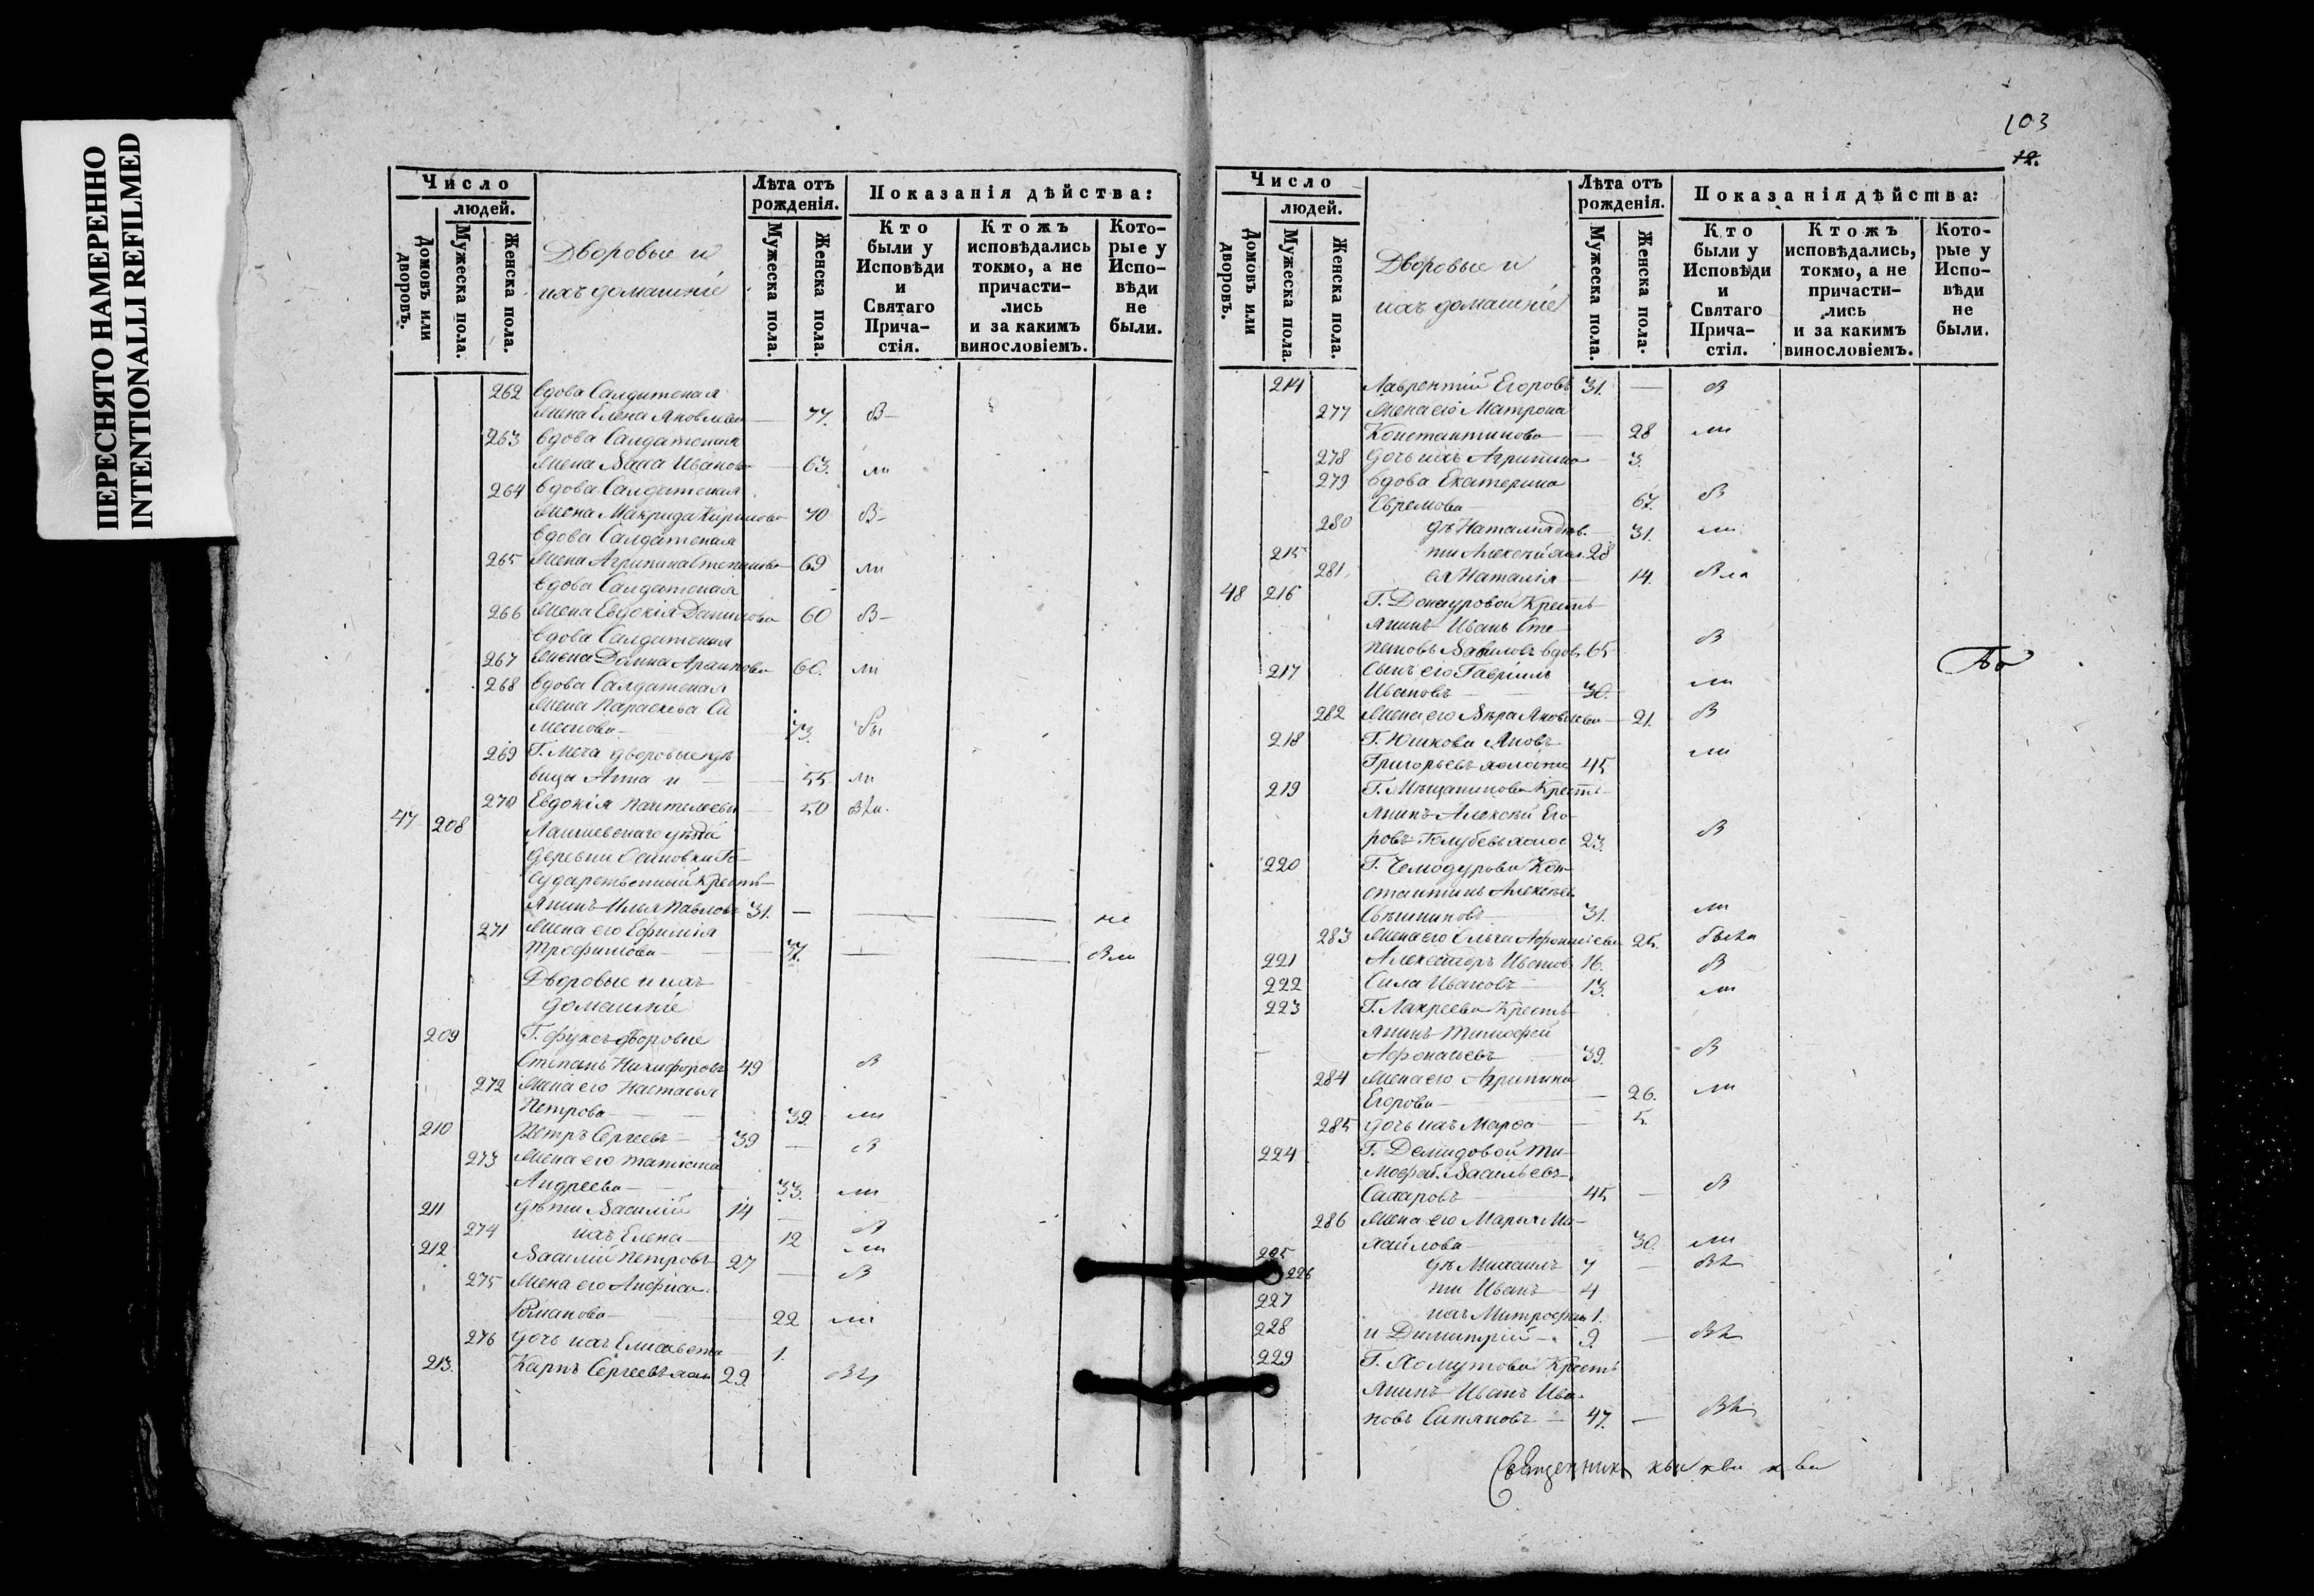 ПЕРЕСНЯТО НАМЕРЕННО
INTENTIONALLI REFILMED
Число
людей.
Домовъ или дворовъ.
Мужеска пола.
Женска пола.
Дворовые и
ихъ домашніе
Лѣта отъ рожденія.
Мужеска пола.
Женска пола.
Показанія дѣйства:
Кто были у Исповѣди и Святаго Прича-стія.
Ктожъ исповѣдались токмо, а не причасти-лись и за какимъ винословіемъ.
Кото-рые у Испо-вѣди не были.
262 вдова Салдатская
жена Елена Яковлева — 77. В—
263 вдова Салдатская
жена Васса Иванова — 63. ли
264 вдова Салдатская
жена Макрида Кирилова 70 В—
вдова Салдатская
265 жена Агрипина Степанова 69 ли
вдова Салдатская
266 жена Евдокія Данилова 60 В—
вдова Салдатская
267 жена Домна Архипова 60. ли
268 вдова Салдатская
жена Параскева Се
менова — 73. бы
269 Г. дворовые дѣ
вицы Анна и — 55 ли
270 Евдокія Пантелеева — 50
47 208 Лаишевскаго уѣзда
деревни Осиновки Го-
сударственный Кресть-
янинъ Илья Павловъ 31. — не
271 жена его Ефимія
Трофимова — 37. —
Дворовые и ихъ
домашніе
209 Г. Фуксъ дворовые
Степанъ Никифоровъ 49 В
272 жена его Настасья
Петрова — 39. ли
210 Петръ Сергеевъ — 39 — В
273 жена его Татіана
Андреева — 33. ли
211 дѣти Василій 14 —
274 ихъ Елена — 12 В
212 Василій Петровъ 27 ли
275 жена его Анфиса — В
Романова — 22 ли
276 дочь ихъ Елисавета — 1.
213. Карпъ Сергеевъ хол 29.
103
12.
Число
людей.
Домовъ или дворовъ.
Мужеска пола.
Женска пола.
Дворовые и
ихъ домашніе
Лѣта отъ рожденія.
Мужеска пола.
Женска пола.
Показанія дѣйства:
Кто были у Исповѣди и Святаго Прича-стія.
Ктожъ исповѣдались, токмо, а не причасти-лись и за какимъ винословіемъ.
Кото-рые у Испо-вѣди не были.
214 Лаврентій Егоровъ 31. — В
277 жена его Матрона
Константинова — 28 ли
278 дочь ихъ Агрипина — 3.
279 вдова Екатерина
Ефремова — 67. В
280 дѣ Наталія дѣв. — 31. ли
215 ти Алексѣй хол. 28
281. ея Наталія — 14.
48 216 Г. Донауровой Кресть-
янинъ Иванъ Сте-
пановъ вдов. 65 В
217 Сынъ его Гавріилъ
Ивановъ — 30. ли
282 жена его Вѣра Яковлева — 21. В
218 Г. Юшкова Яковъ
Григорьевъ холостъ 45 ли
219 Г. Мещанинова Кресть-
янинъ Алексѣй Его-
ровъ Голубевъ холос 23. В
220 Г. Чемодурова Кон-
стантинъ Алексѣев
— 31. ли
283 жена его Ольга Афонасіева 25.
221 Александръ Ивановъ 16. В
222 Сила Ивановъ — 13. ли
223 Г. Кресть-
янинъ Тимофей
Афонасьевъ — 39. В
284 жена его Агрипина
Егорова — 26. ли
285 дочь ихъ Марфа — 5.
224 Г. Демидовой Ти-
мофей Васильевъ
Сахаровъ — 45 — В
286 жена его Марья Ми-
хайлова — 30. ли
225 дѣ Михаилъ 7 —
226 ти Иванъ — 4
227 ихъ Митрофанъ 1.
228 и Димитрій — 9. —
229 Г. Хомутова Кресть
янинъ Иванъ Ива-
новъ — 47. —
Священникъ